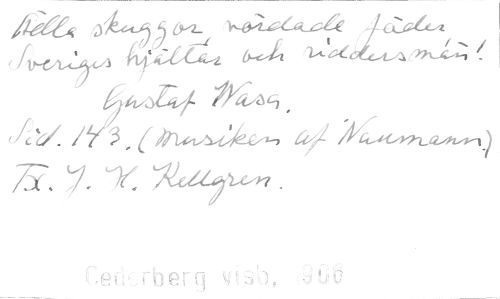 Ädla skuggor, vördade fäder
Sveriges hjältar och riddersmän!
Gustaf Wasa.
Sid. 143. (Musiken af Naumann.)
Tx. J. H. Kellgren.
Cederberg visb, 906